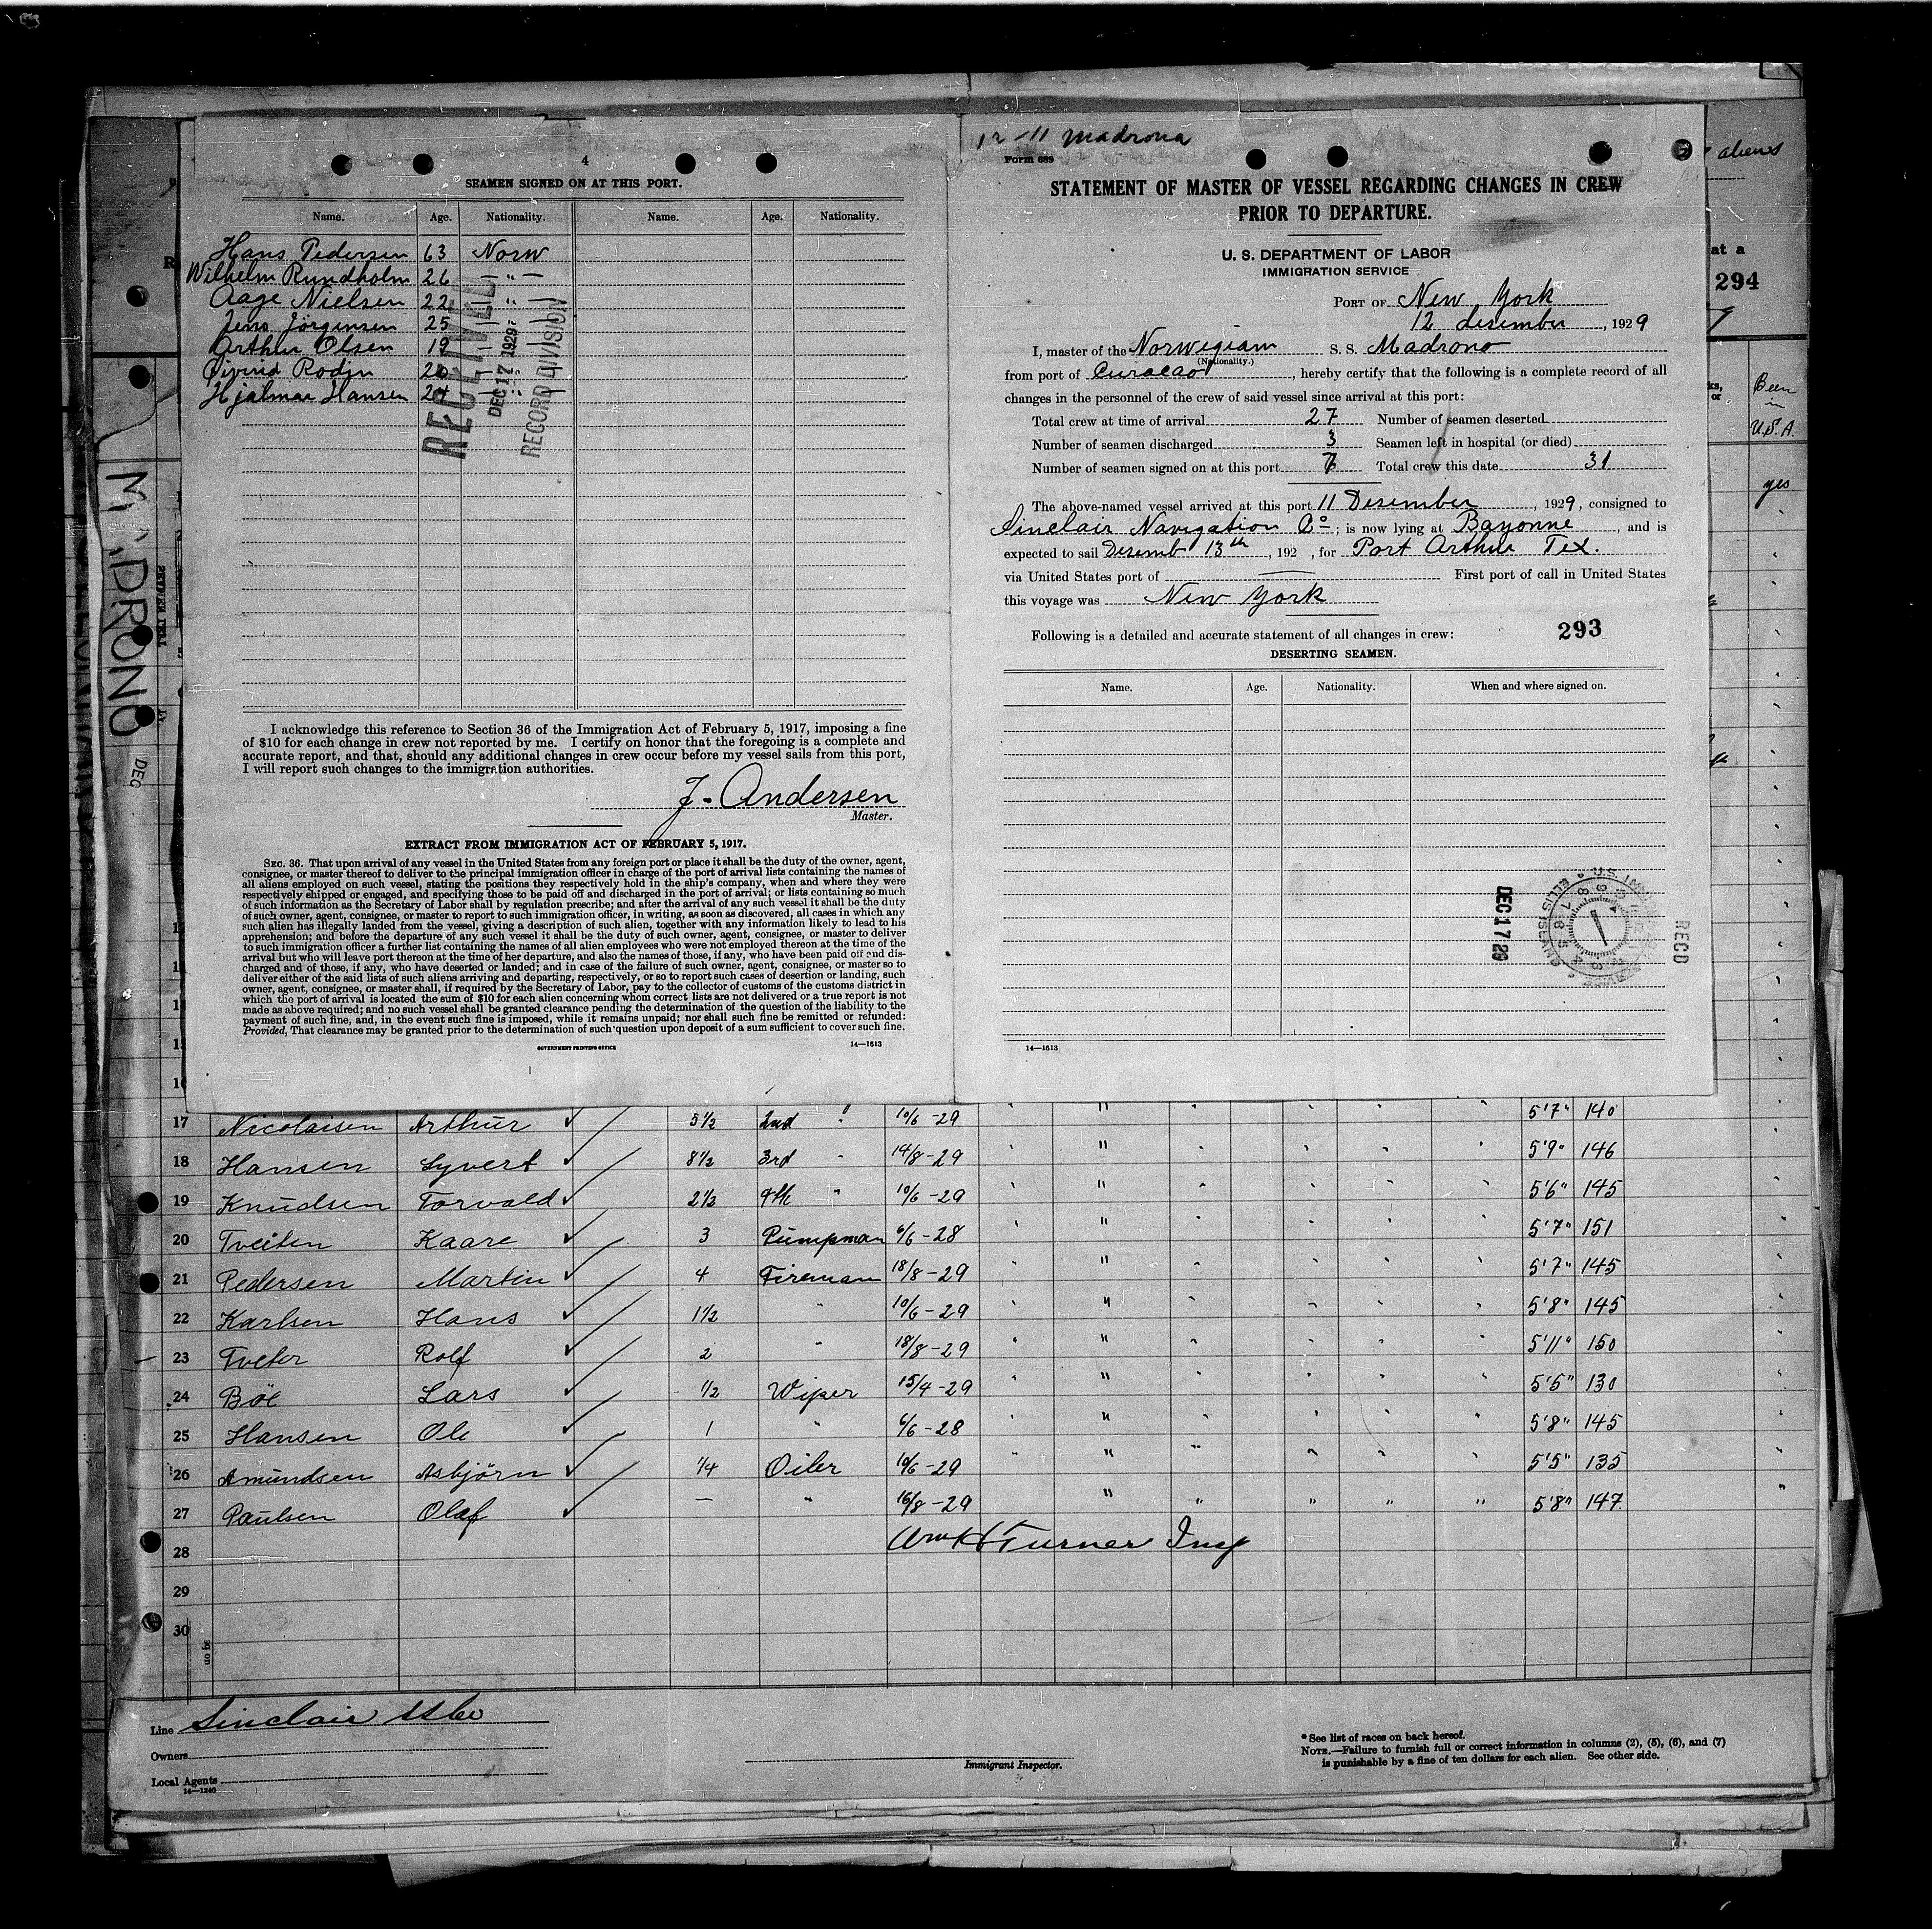 4
SEAMEN SIGNED ON AT THIS PORT.
Name. Age. Nationality. Name. Age. Nationality.
Hans Pedersen 63 Norw
Wilhelm Rundholm 26 — " —
Aage Nielsen 22 "
Jens Jörgensen 25
Arthur Olsen 19
Öivind Rodin 20
Hjalmar Hansen 24
RECEIVED
DEC 17 1929
RECORD DIVISION
I acknowledge this reference to Section 36 of the Immigration Act of February 5, 1917, imposing a fine
of $10 for each change in crew not reported by me. I certify on honor that the foregoing is a complete and
accurate report, and that, should any additional changes in crew occur before my vessel sails from this port,
I will report such changes to the immigration authorities.
J. Andersen
Master.
EXTRACT FROM IMMIGRATION ACT OF FEBRUARY 5, 1917.
SEC. 36. That upon arrival of any vessel in the United States from any foreign port or place it shall be the duty of the owner, agent,
consignee, or master thereof to deliver to the principal immigration officer in charge of the port of arrival lists containing the names of
all aliens employed on such vessel, stating the positions they respectively hold in the ship's company, when and where they were
respectively shipped or engaged, and specifying those to be paid off and discharged in the port of arrival; or lists containing so much
of such information as the Secretary of Labor shall by regulation prescribe; and after the arrival of any such vessel it shall be the duty
of such owner, agent, consignee, or master to report to such immigration officer, in writing, as soon as discovered, all cases in which any
such alien has illegally landed from the vessel, giving a description of such alien, together with any information likely to lead to his
apprehension; and before the departure of any such vessel it shall be the duty of such owner, agent, consignee, or master to deliver
to such immigration officer a further list containing the names of all alien employees who were not employed thereon at the time of the
arrival but who will leave port thereon at the time of her departure, and also the names of those, if any, who have been paid off and dis-
charged and of those, if any, who have deserted or landed; and in case of the failure of such owner, agent, consignee, or master so to
deliver either of the said lists of such aliens arriving and departing, respectively, or so to report such cases of desertion or landing, such
owner, agent, consignee, or master shall, if required by the Secretary of Labor, pay to the collector of customs of the customs district in
which the port of arrival is located the sum of $10 for each alien concerning whom correct lists are not delivered or a true report is not
made as above required; and no such vessel shall be granted clearance pending the determination of the question of the liability to the
payment of such fine, and, in the event such fine is imposed, while it remains unpaid; nor shall such fine be remitted or refunded:
Provided, That clearance may be granted prior to the determination of such question upon deposit of a sum sufficient to cover such fine.
GOVERNMENT PRINTING OFFICE 14—1613
12-11 Madrona
Form 689
STATEMENT OF MASTER OF VESSEL REGARDING CHANGES IN CREW
PRIOR TO DEPARTURE.
U. S. DEPARTMENT OF LABOR
IMMIGRATION SERVICE
PORT OF New York
12 desember, 1929
I, master of the Norwegiam S. S. Madrono
(Nationality.)
from port of Curacao, hereby certify that the following is a complete record of all
changes in the personnel of the crew of said vessel since arrival at this port:
Total crew at time of arrival 27 Number of seamen deserted
Number of seamen discharged 3 Seamen left in hospital (or died)
Number of seamen signed on at this port 7 Total crew this date 31
The above-named vessel arrived at this port 11 Desember, 1929, consigned to
Sinclair Navigation Co; is now lying at Bayonne, and is
expected to sail Desemb 13th, 192 , for Port Arthur Tex.
via United States port of — First port of call in United States
this voyage was New York
Following is a detailed and accurate statement of all changes in crew: 293
DESERTING SEAMEN.
Name. Age. Nationality. When and where signed on.
DEC 17 29
REC'D
14—1613
aliens
at a
294
Been
in
U.S.A.
yes
MADRONO
DEC
16
17 Nicolaisen Arthur ✓ 5½ 2nd " 10/6-29 " " 5'7" 140
18 Hansen Syvert ✓ 8½ 3rd " 14/8-29 " " 5'9" 146
19 Knudsen Torvald ✓ 2½ 4th " 10/6-29 " " 5'6" 145
20 Tveiten Kaare ✓ 3 Pumpman 6/6-28 " " 5'7" 151
21 Pedersen Martin ✓ 4 Fireman 18/8-29 " " 5'7" 145
22 Karlsen Hans ✓ 1½ " 10/6-29 " " 5'8" 145
23 Tveter Rolf ✓ 2 " 18/8-29 " " 5'11" 150
24 Böe Lars ✓ ½ Wiper 15/4-29 " " 5'5" 130
25 Hansen Ole ✓ 1 " 6/6-28 " " 5'8" 145
26 Amundsen Asbjörn ✓ ¼ Oiler 10/6-29 " " 5'5" 135
27 Paulsen Olaf ✓ — " 16/8-29 " " 5'8" 147
28 Wm H Turner Insp
29
30
Line Sinclair SS Co
Owners
Local Agents
14—1240
Immigrant Inspector.
* See list of races on back hereof.
NOTE.—Failure to furnish full or correct information in columns (2), (5), (6), and (7)
is punishable by a fine of ten dollars for each alien. See other side.